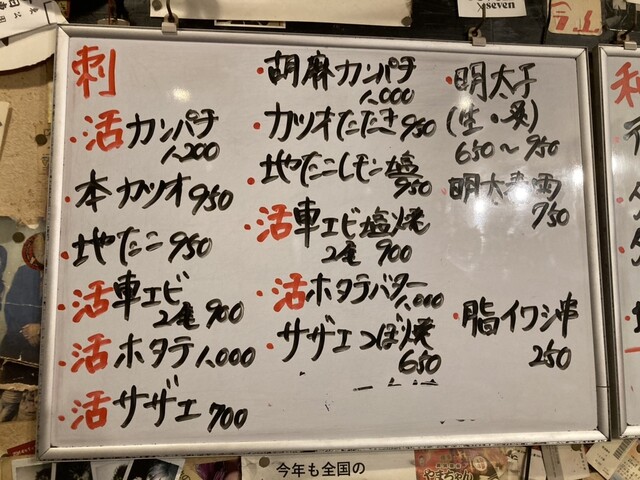 刺
・活カンパチ
1,200
・本カツオ950
・地たこ950
・活車エビ
2尾900
・活ホタテ1,000
・活サザエ700
・胡麻カンパチ
1,000
・カツオたたき950
・地たこレモン塩
950
・活車エビ塩焼
2尾900
・活ホタテバター
1,000
・サザエつぼ焼
650
・明太子
(生・炙)
650〜950
950
・脂イワシ串
250
x seven
今年も全国の
やまちゃん